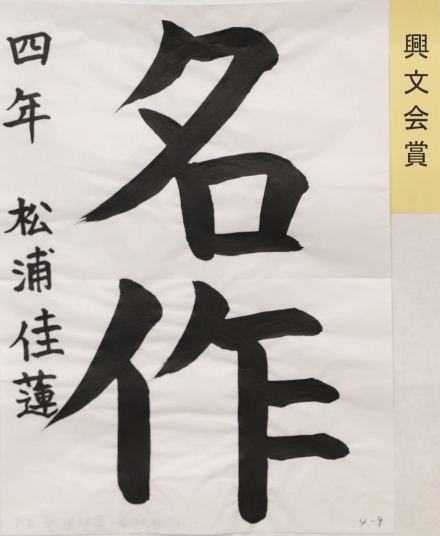 興文会賞
名作
四年 松浦佳蓮
4-9